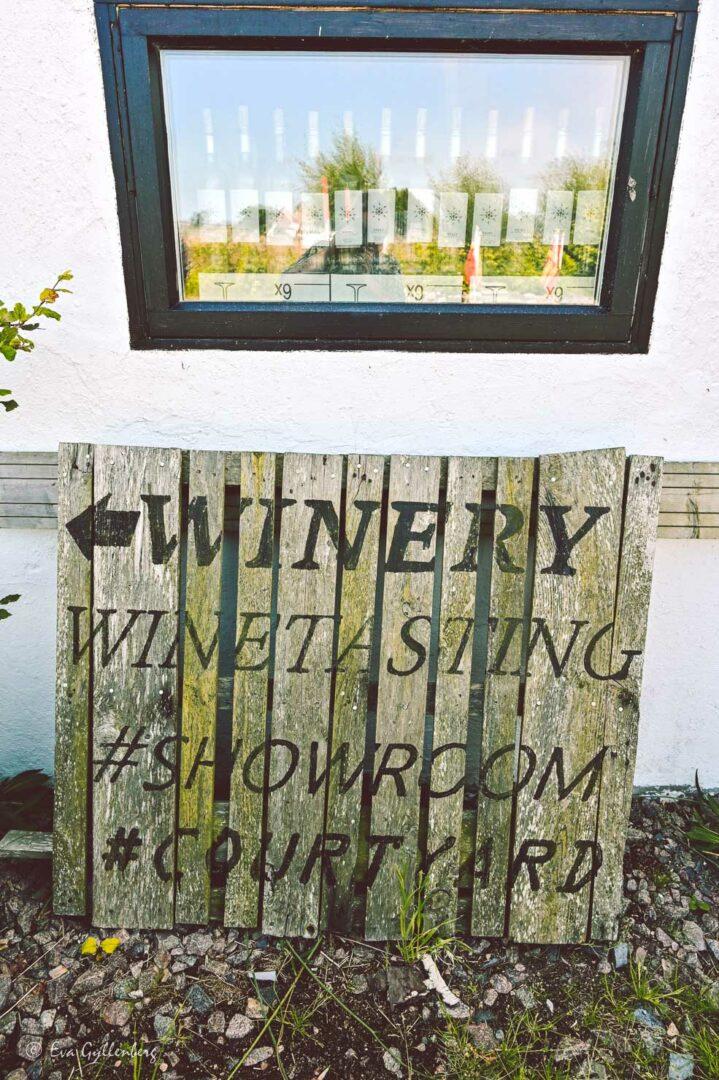 x6
x6
x6
WINERY
WINETASTING
#SHOWROOM
#COURTYARD
© Eva Gyllenberg